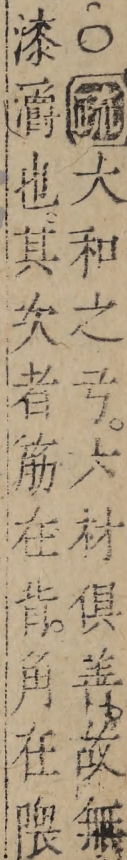 ○疏大和之弓。六材俱善。故無
漆灂也。其次者筋在背。角在隈